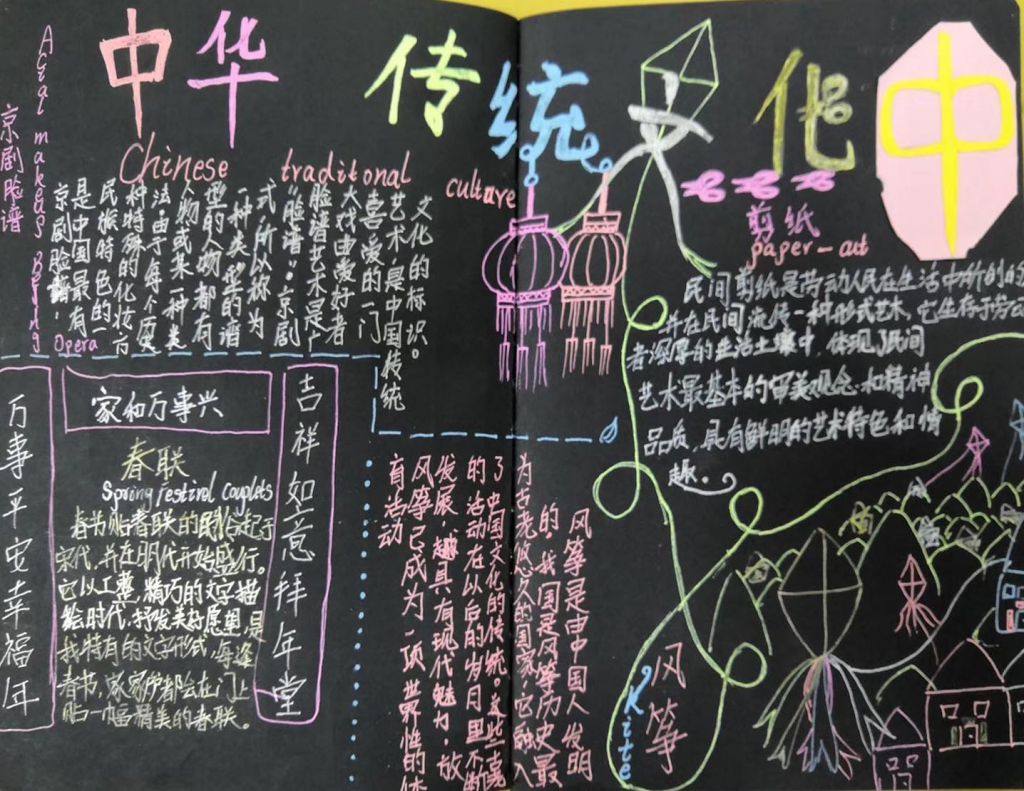 中华传统文化
中
Chinese traditional culture
京剧脸谱
Opera
京剧脸谱，
是中国最有
民族特色的一
种特殊的化妆方
法。由于每个
人物或某一种类
型的人物都有
一种类型的谱
式，所以称为
"脸谱"。京剧
脸谱艺术是广
大戏曲爱好者
喜爱的一门
艺术，是中国传统
文化的标识。
剪纸
paper-cut
民间剪纸是劳动人民在生活中所
并在民间流传一种形式艺术，它生存于劳
者深厚的生活土壤中，体现了民间
艺术最基本的审美观念和精神
品质，具有鲜明的艺术特色和情
趣。
家和万事兴
万事平安幸福年
吉祥如意拜年堂
春联
Spring festival couplets
宋代，并在明代开始盛行。
它以工整、精巧的文字描
绘时代，抒发美好愿望，是
我特有的文字形式，每逢
春书，家家户都会在门上
贴一幅精美的春联。
风筝是由中国人发明
的，我国是风筝历史最
为古老悠久的国家，它融入
了中国文化的传统。这些
的活动在以后的岁月里不断
发展，越具有现代魅力，放
风筝已成为一项世界性的体
育活动
风筝
Kite